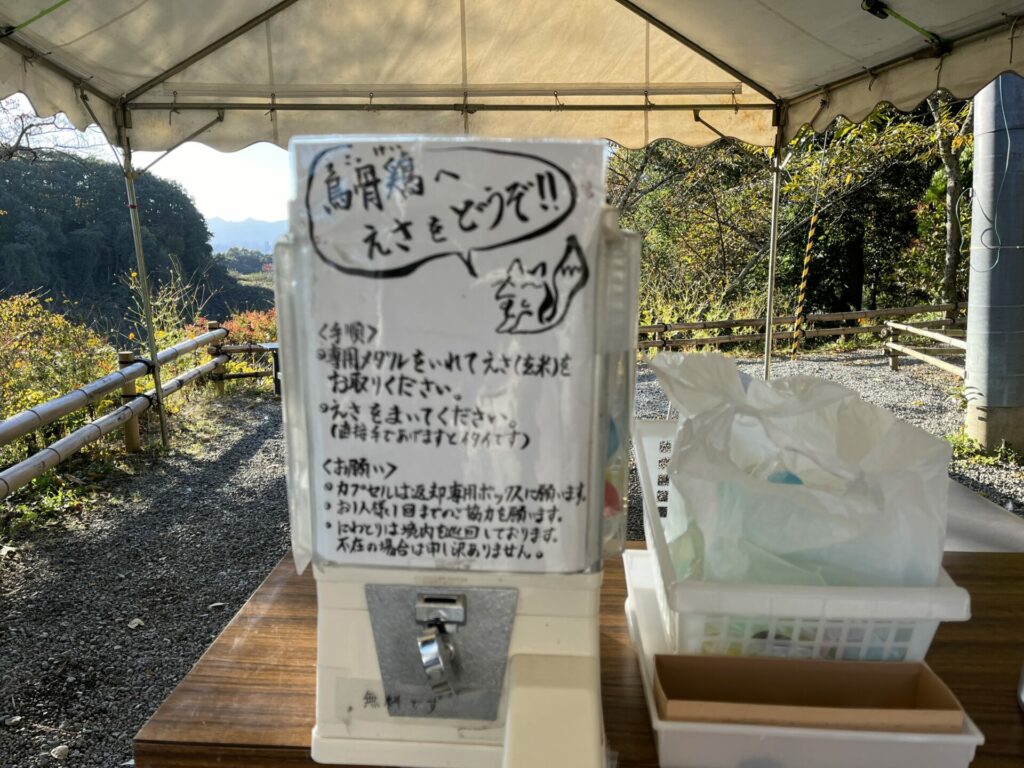 うこっけい
烏骨鶏へ
えさをどうぞ!!
<手順>
•専用メダルをいれてえさ(玄米)を
お取りください。
•えさをまいてください。
(直接手であげますとイタイです)
<お願い>
•カプセルは返却専用ボックスに願います。
•お1人様1回までのご協力を願います。
•にわとりは境内を巡回しております。
不在の場合は申し訳ありません。
無料です